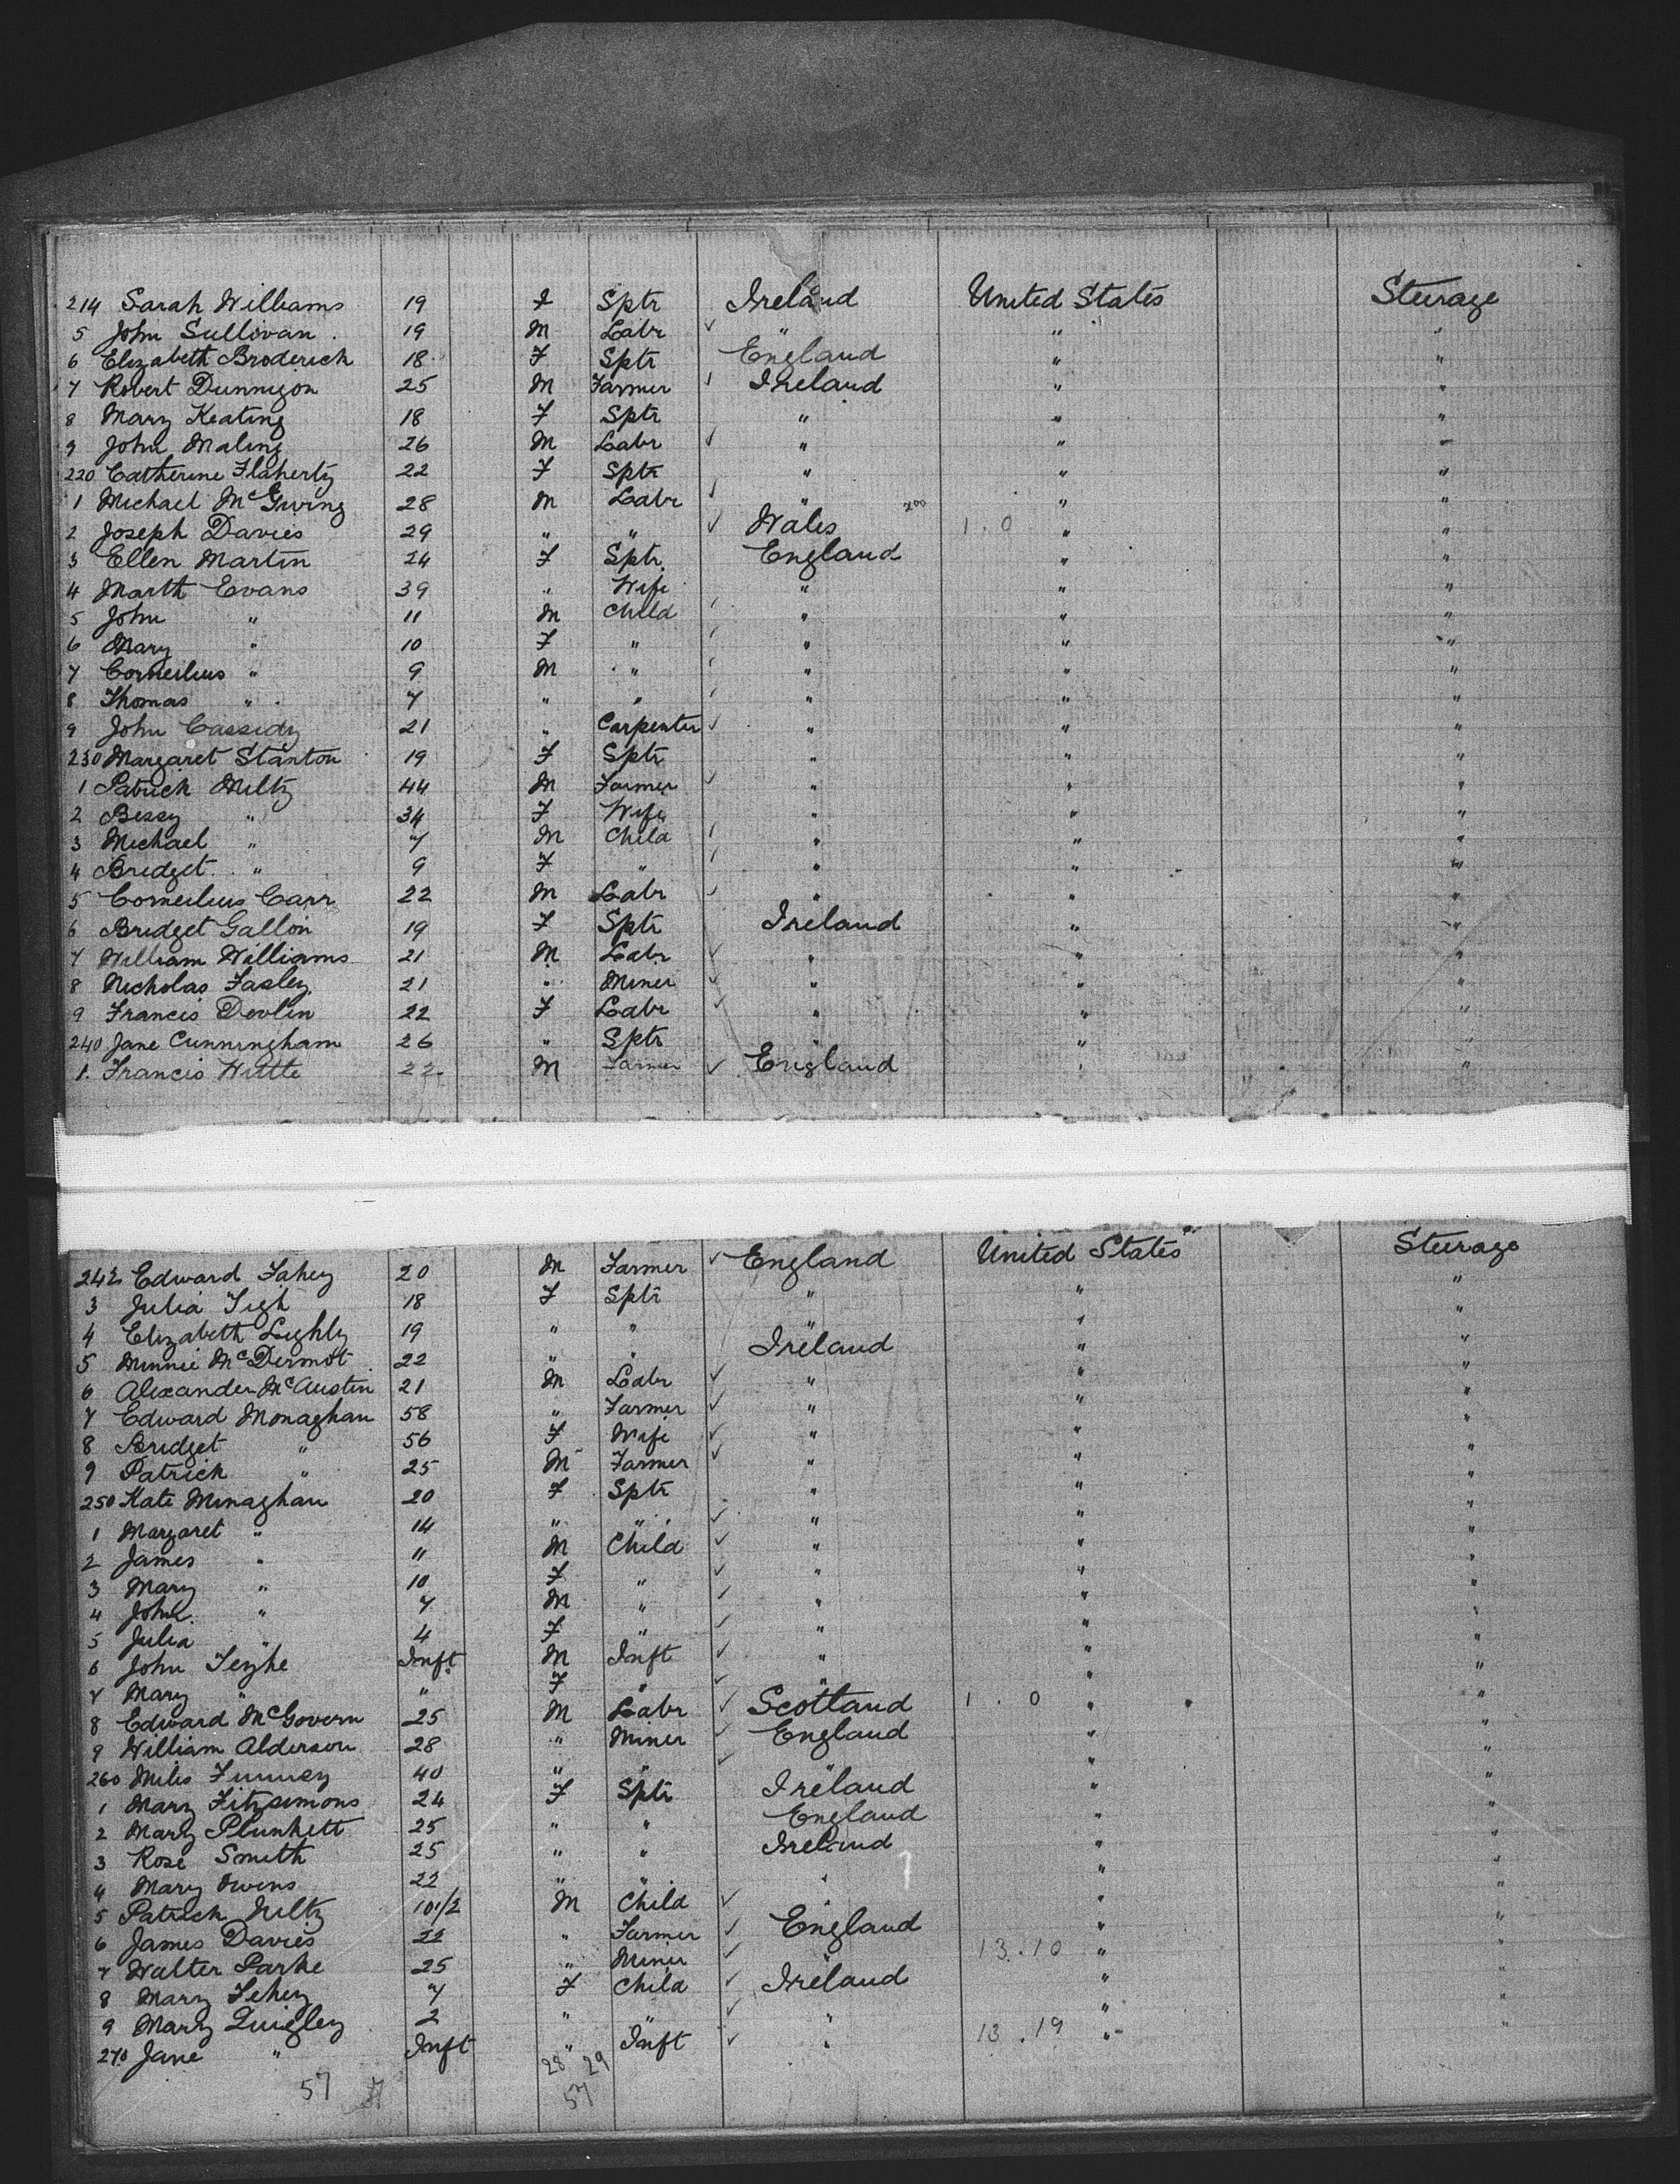 214 Sarah Williams 19 F Sptr Ireland United States Steerage
5 John Sullivan 19 M Labr ✓ " " "
6 Elizabeth Broderick 18 F Sptr England " "
7 Robert Dunnigon 25 M Farmer ✓ Ireland " "
8 Mary Keating 18 F Sptr " " "
9 John Maling 26 M Labr ✓ " " "
220 Catherine Flaherty 22 F Sptr " " "
1 Michael McGiving 28 M Labr ✓ " " "
2 Joseph Davies 29 " " ✓ Wales 1.0 " "
3 Ellen Martin 24 F Sptr England " "
4 Marth Evans 39 " Wife " " "
5 John " 11 M Child " " "
6 Mary " 10 F " " " "
7 Corneilius " 9 M " " " "
8 Thomas " 7 " " " " "
9 John Cassidy 21 " Carpenter ✓ " " "
230 Margaret Stanton 19 F Sptr " " "
1 Patrick Miltz 44 M Farmer ✓ " " "
2 Bessy " 34 F Wife " " "
3 Michael " 7 M Child " " "
4 Bridget " 9 F " " " "
5 Corneilius Carr 22 M Labr ✓ " " "
6 Bridget Gallon 19 F Sptr Ireland " "
7 William Williams 21 M Labr ✓ " " "
8 Nicholas Fasley 21 " Miner ✓ " " "
9 Francis Devlin 22 F Labr ✓ " " "
240 Jane Cunningham 26 " Sptr " " "
1. Francis Hutte 22 M Farmer ✓ England " "
242 Edward Fahey 20 M Farmer ✓ England United States Steerage
3 Julia Tigh 18 F Sptr " " "
4 Elizabeth Lighly 19 " " " " "
5 Minnie McDermot 22 " " Ireland " "
6 Alexander McAustin 21 M Labr ✓ " " "
7 Edward Monaghan 58 " Farmer ✓ " " "
8 Bridget " 56 F Wife ✓ " " "
9 Patrick " 25 M Farmer ✓ " " "
250 Kate Minaghan 20 F Sptr " " "
1 Margaret " 14 " " ✓ " " "
2 James " 11 M Child ✓ " " "
3 Mary " 10 F " ✓ " " "
4 John " 7 M " ✓ " " "
5 Julia " 4 F " ✓ " " "
6 John Teighe Inft M Inft ✓ " " "
7 Mary " " F " ✓ " " "
8 Edward McGovern 25 M Labr ✓ Scotland 1.0 " "
9 William Alderson 28 " Miner ✓ England " "
260 Miles 40 " " ✓ " " "
1 Mary Fitzsimons 24 F Sptr Ireland " "
2 Mary Plunkett 25 " " England " "
3 Rose Smith 25 " " Ireland " "
4 Mary Owens 22 " " " " "
5 Patrick Miltz 10 1/2 M Child ✓ " " "
6 James Davies 22 " Farmer ✓ England " "
7 Walter Parke 25 " Miner ✓ " 13.10 " "
8 Mary Fehey 7 F Child ✓ Ireland " "
9 Mary Quigley 2 " " ✓ " " "
270 Jane " Inft " Inft ✓ " 13.19 " "
28 29
57 57